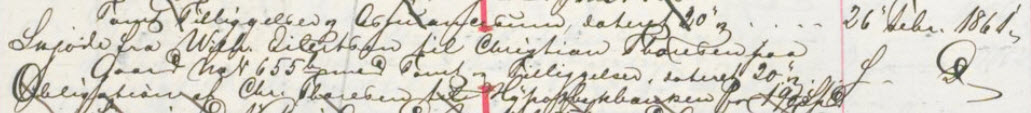 Tomt, Tilliggelser og Assurancesum, dateret 20' ds. . . . . . 26' Febr. 1861.
Skjøde fra Wilh. Eilertsen til Christian Thoresen paa
Gaard No 655 b med Tomt og Tilliggelser, dateret 20' ds.
Obligation af Chr. Thoresen til Hypothekbanken for